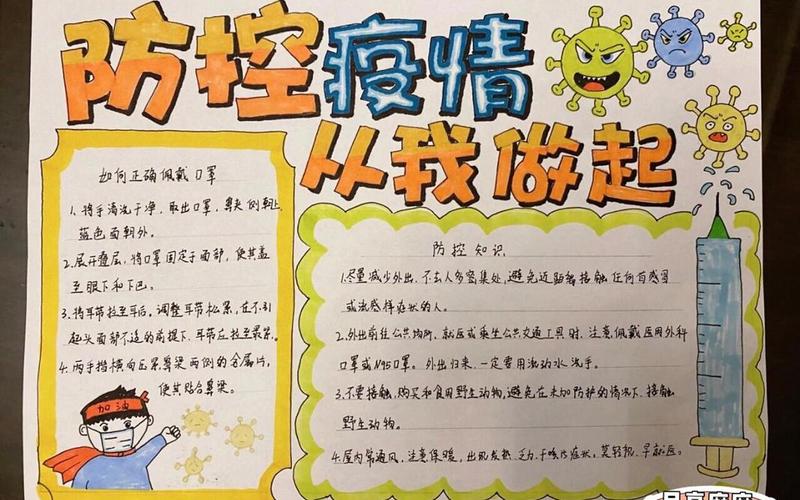 防控疫情
从我做起
如何正确佩戴口罩
1、将手清洗干净,取出口罩,鼻夹侧朝上,
蓝色面朝外。
2.展开叠层,将口罩固定于面部,使其盖
至眼下和下巴。
3.将耳带拉至耳后,调整耳带松紧,在不引
起头面部不适的前提下,耳带应拉至最紧。
4.两手指横向压紧鼻梁两侧的金属片,
使其贴合鼻梁。
加油
防控知识
1.尽量减少外出,不去人多密集处,避免近距离接触任何有感冒
或流感样症状的人。
2.外出前往公共场所、就医或乘坐公共交通工具时,注意佩戴医用外科
口罩或N95口罩。外出归来,一定要用流动水洗手。
3.不要接触、购买和食用野生动物,避免在未加防护的情况下,接触
野生动物。
4.屋内常通风,注意保暖,出现发热、乏力、干咳等症状,莫轻视,早就医。